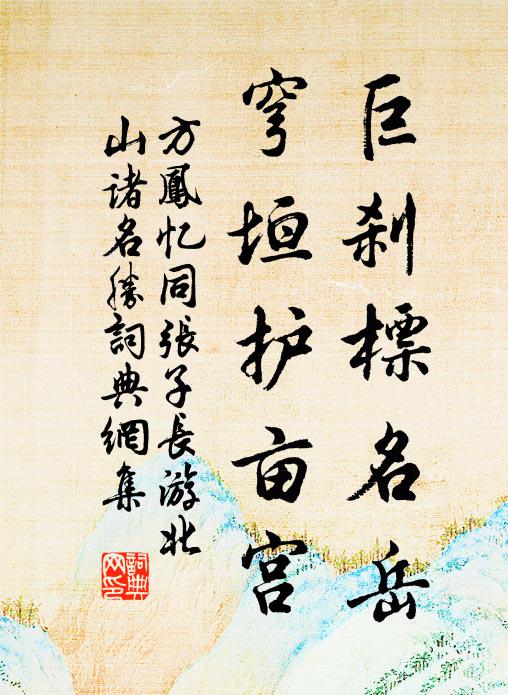 巨刹標名岳
穹垣护亩宫
方鳳忆同張子長游北
山诸名勝詞典網集
詞典网印